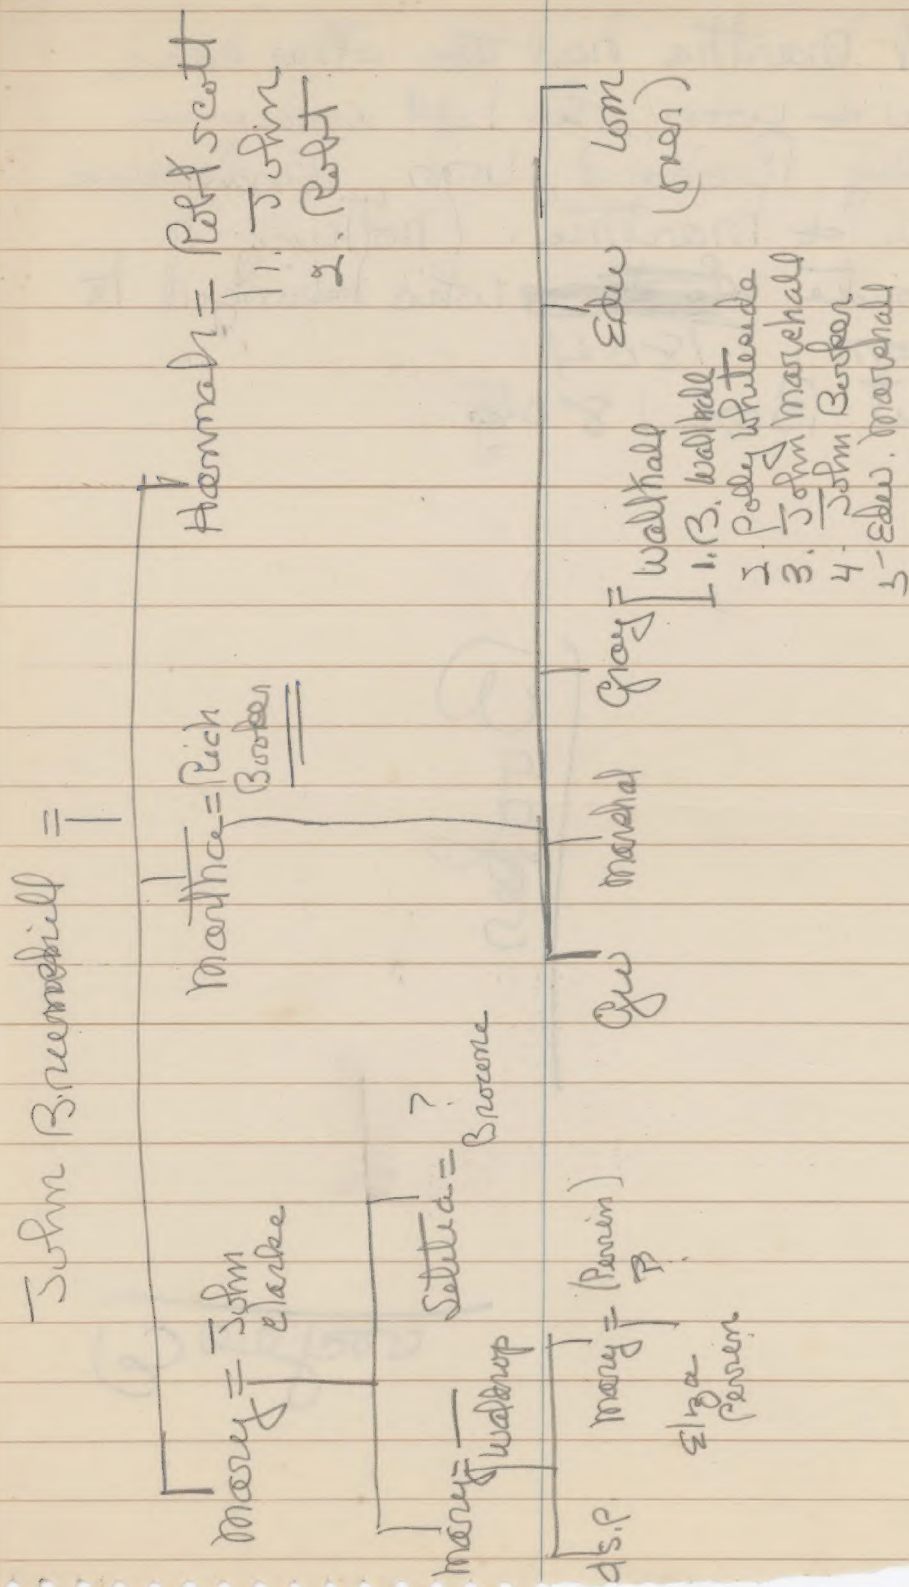 John Brummhill =
Mary = John
Clarke
Martha = Rich
Booker
Hannah = Robt Scott
1. John
2. Robt
Mary =
Waldrop
Letitia = ?
Browne
d s.p.
Mary = (Perrin)
B
Eliza
Perrin
Gu
Marshal
Gray = Walthall
1. B. Walthall
2. Polly Whiteside
3. John Marshall
4. John Booker
5 - Edw. Marshall
Edw
Wm
(over)